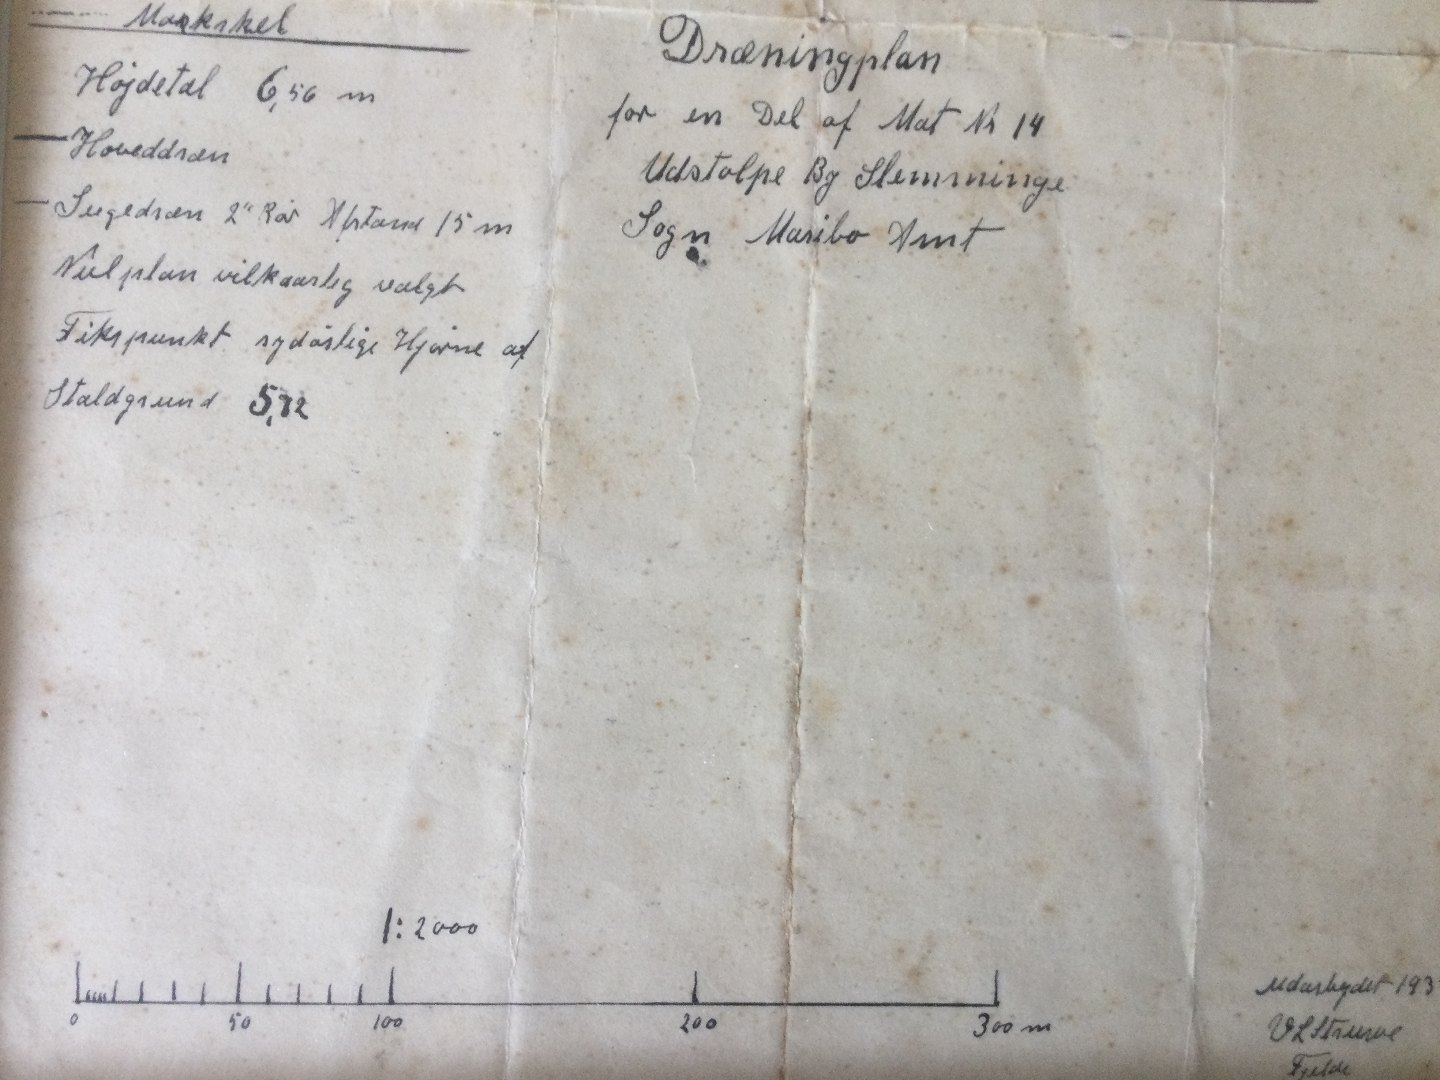 Markskel
Højdetal 6,56 m
Hoveddræn
Sugedræn 2" Rør Afstand 15 m
Nulplan vilkaarlig valgt
Fikspunkt sydøstlige Hjørne af
Staldgrund 5,72
Dræningplan
for en Del af Mat Nr 14
Udstolpe By Slemminge
Sogn Maribo Amt
1:2000
0 50 100 200 300 m
Udarbejdet 193
V L Struwe
Fjelde